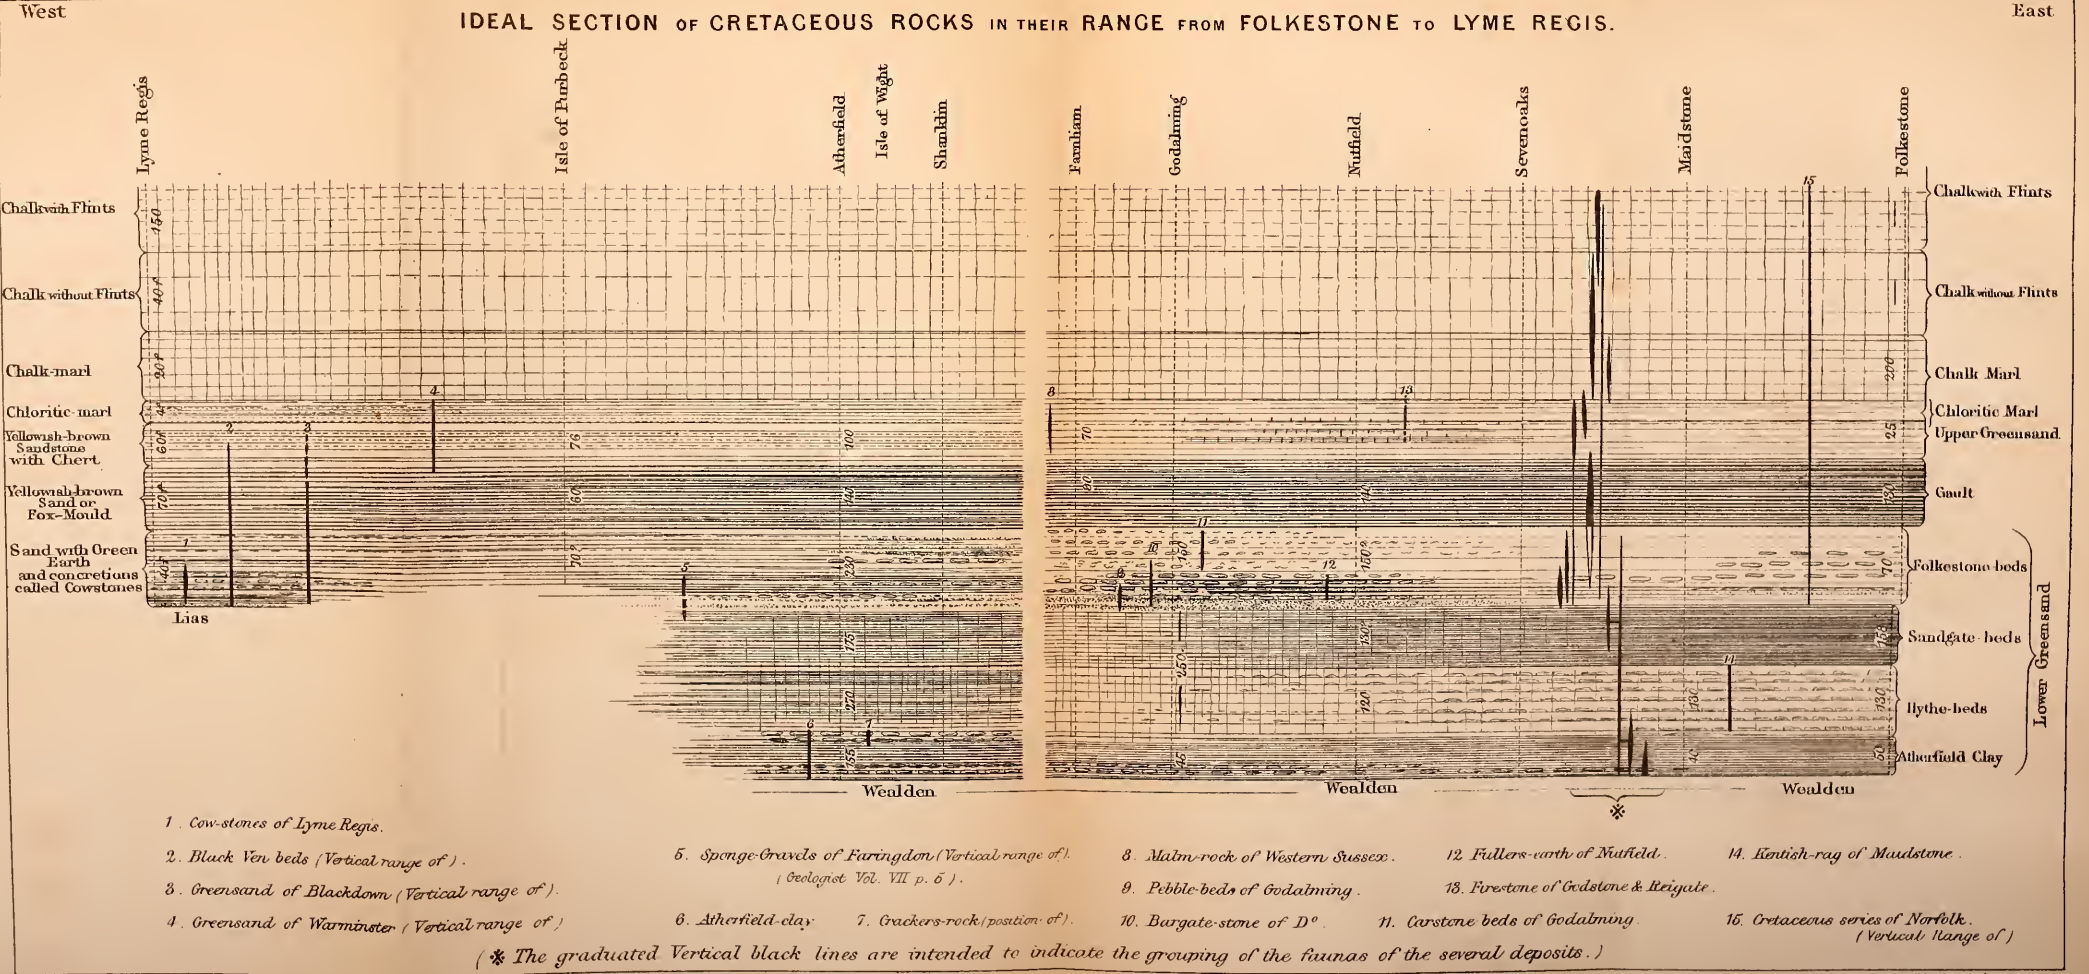 West
East
IDEAL SECTION OF CRETACEOUS ROCKS IN THEIR RANGE FROM FOLKESTONE TO LYME REGIS.
Lyme Regis
Isle of Purbeck
Atherfield
Isle of Wight
Shanklin
Farnham
Godalming
Nutfield
Sevenoaks
Maidstone
Folkestone
Chalk with Flints
Chalk without Flints
Chalk-marl
Chloritic marl
Yellowish-brown
Sandstone
with Chert
Yellowish-brown
Sand or
Fox-Mould
Sand with Green
Earth
and concretions
called Cowstones
Lias
150
70
76
60
70?
100
140
230
175
155
70
90
160
250
45
140
150?
130?
120
130
40
200
25
130
70
158
130
50
1
2
3
4
5
6
7
8
9
10
11
12
13
14
15
Chalk with Flints
Chalk without Flints
Chalk Marl
Chloritic Marl
Upper Greensand
Gault
Folkestone beds
Sandgate-beds
Hythe-beds
Atherfield Clay
Lower Greensand
Wealden
Wealden
Wealden
※
1. Cow-stones of Lyme Regis.
2. Black Ven beds (Vertical range of).
3. Greensand of Blackdown (Vertical range of).
4. Greensand of Warminster (Vertical range of)
5. Sponge-Gravels of Faringdon (Vertical range of).
(Geologist Vol. VII p. 5).
6. Atherfield-clay
7. Crackers-rock (position of).
8. Malm-rock of Western Sussex.
9. Pebble-beds of Godalming.
10. Bargate-stone of Dº.
11. Carstone beds of Godalming.
12 Fullers-earth of Nutfield.
13. Firestone of Godstone & Reigate.
14. Kentish-rag of Maidstone.
15. Cretaceous series of Norfolk.
(Vertical Range of)
(※ The graduated Vertical black lines are intended to indicate the grouping of the faunas of the several deposits.)